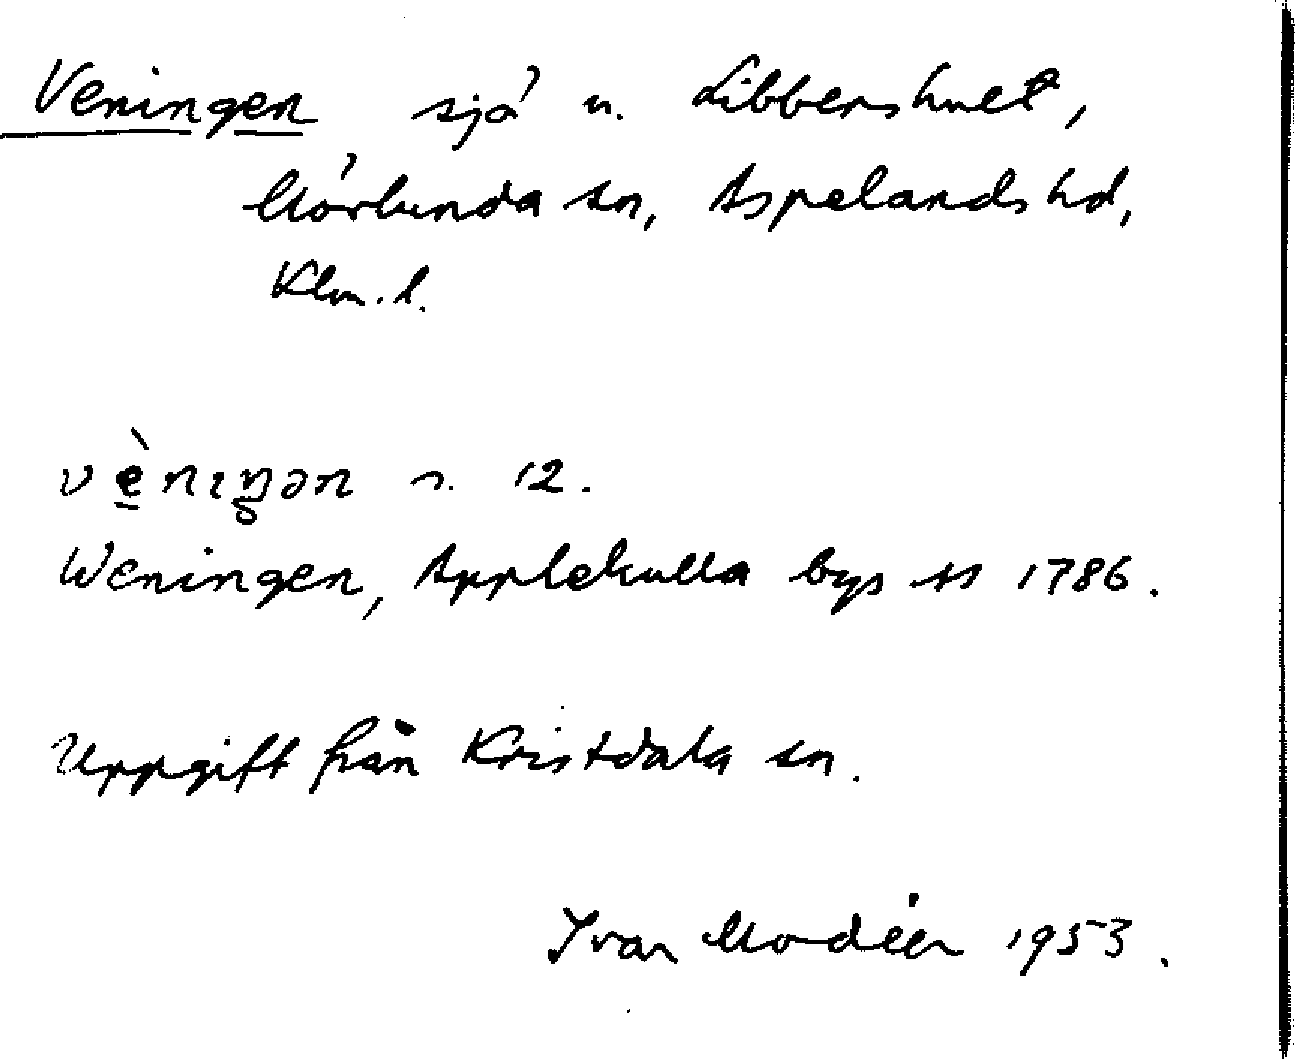 Veningen sjö n. Libbershult,
Mörlunda sn, Aspelands hd,
Klm. l.
vèniŋən s. 12.
Weningen, Applekulla bys ss 1786.
Uppgift från Kristdala sn.
Ivar Modéer 1953.